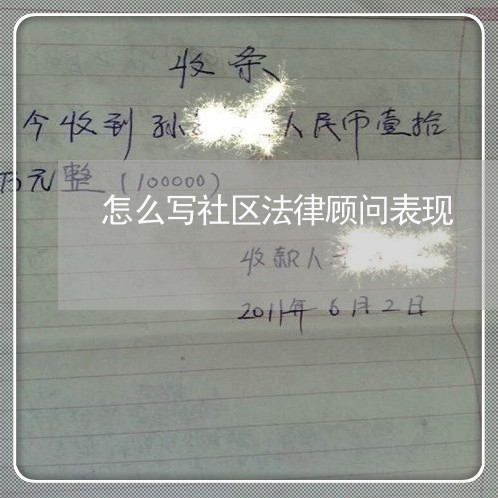 收条
今收到孙 人民币壹拾
万元整（100000）
怎么写社区法律顾问表现
收款人
2011年6月2日